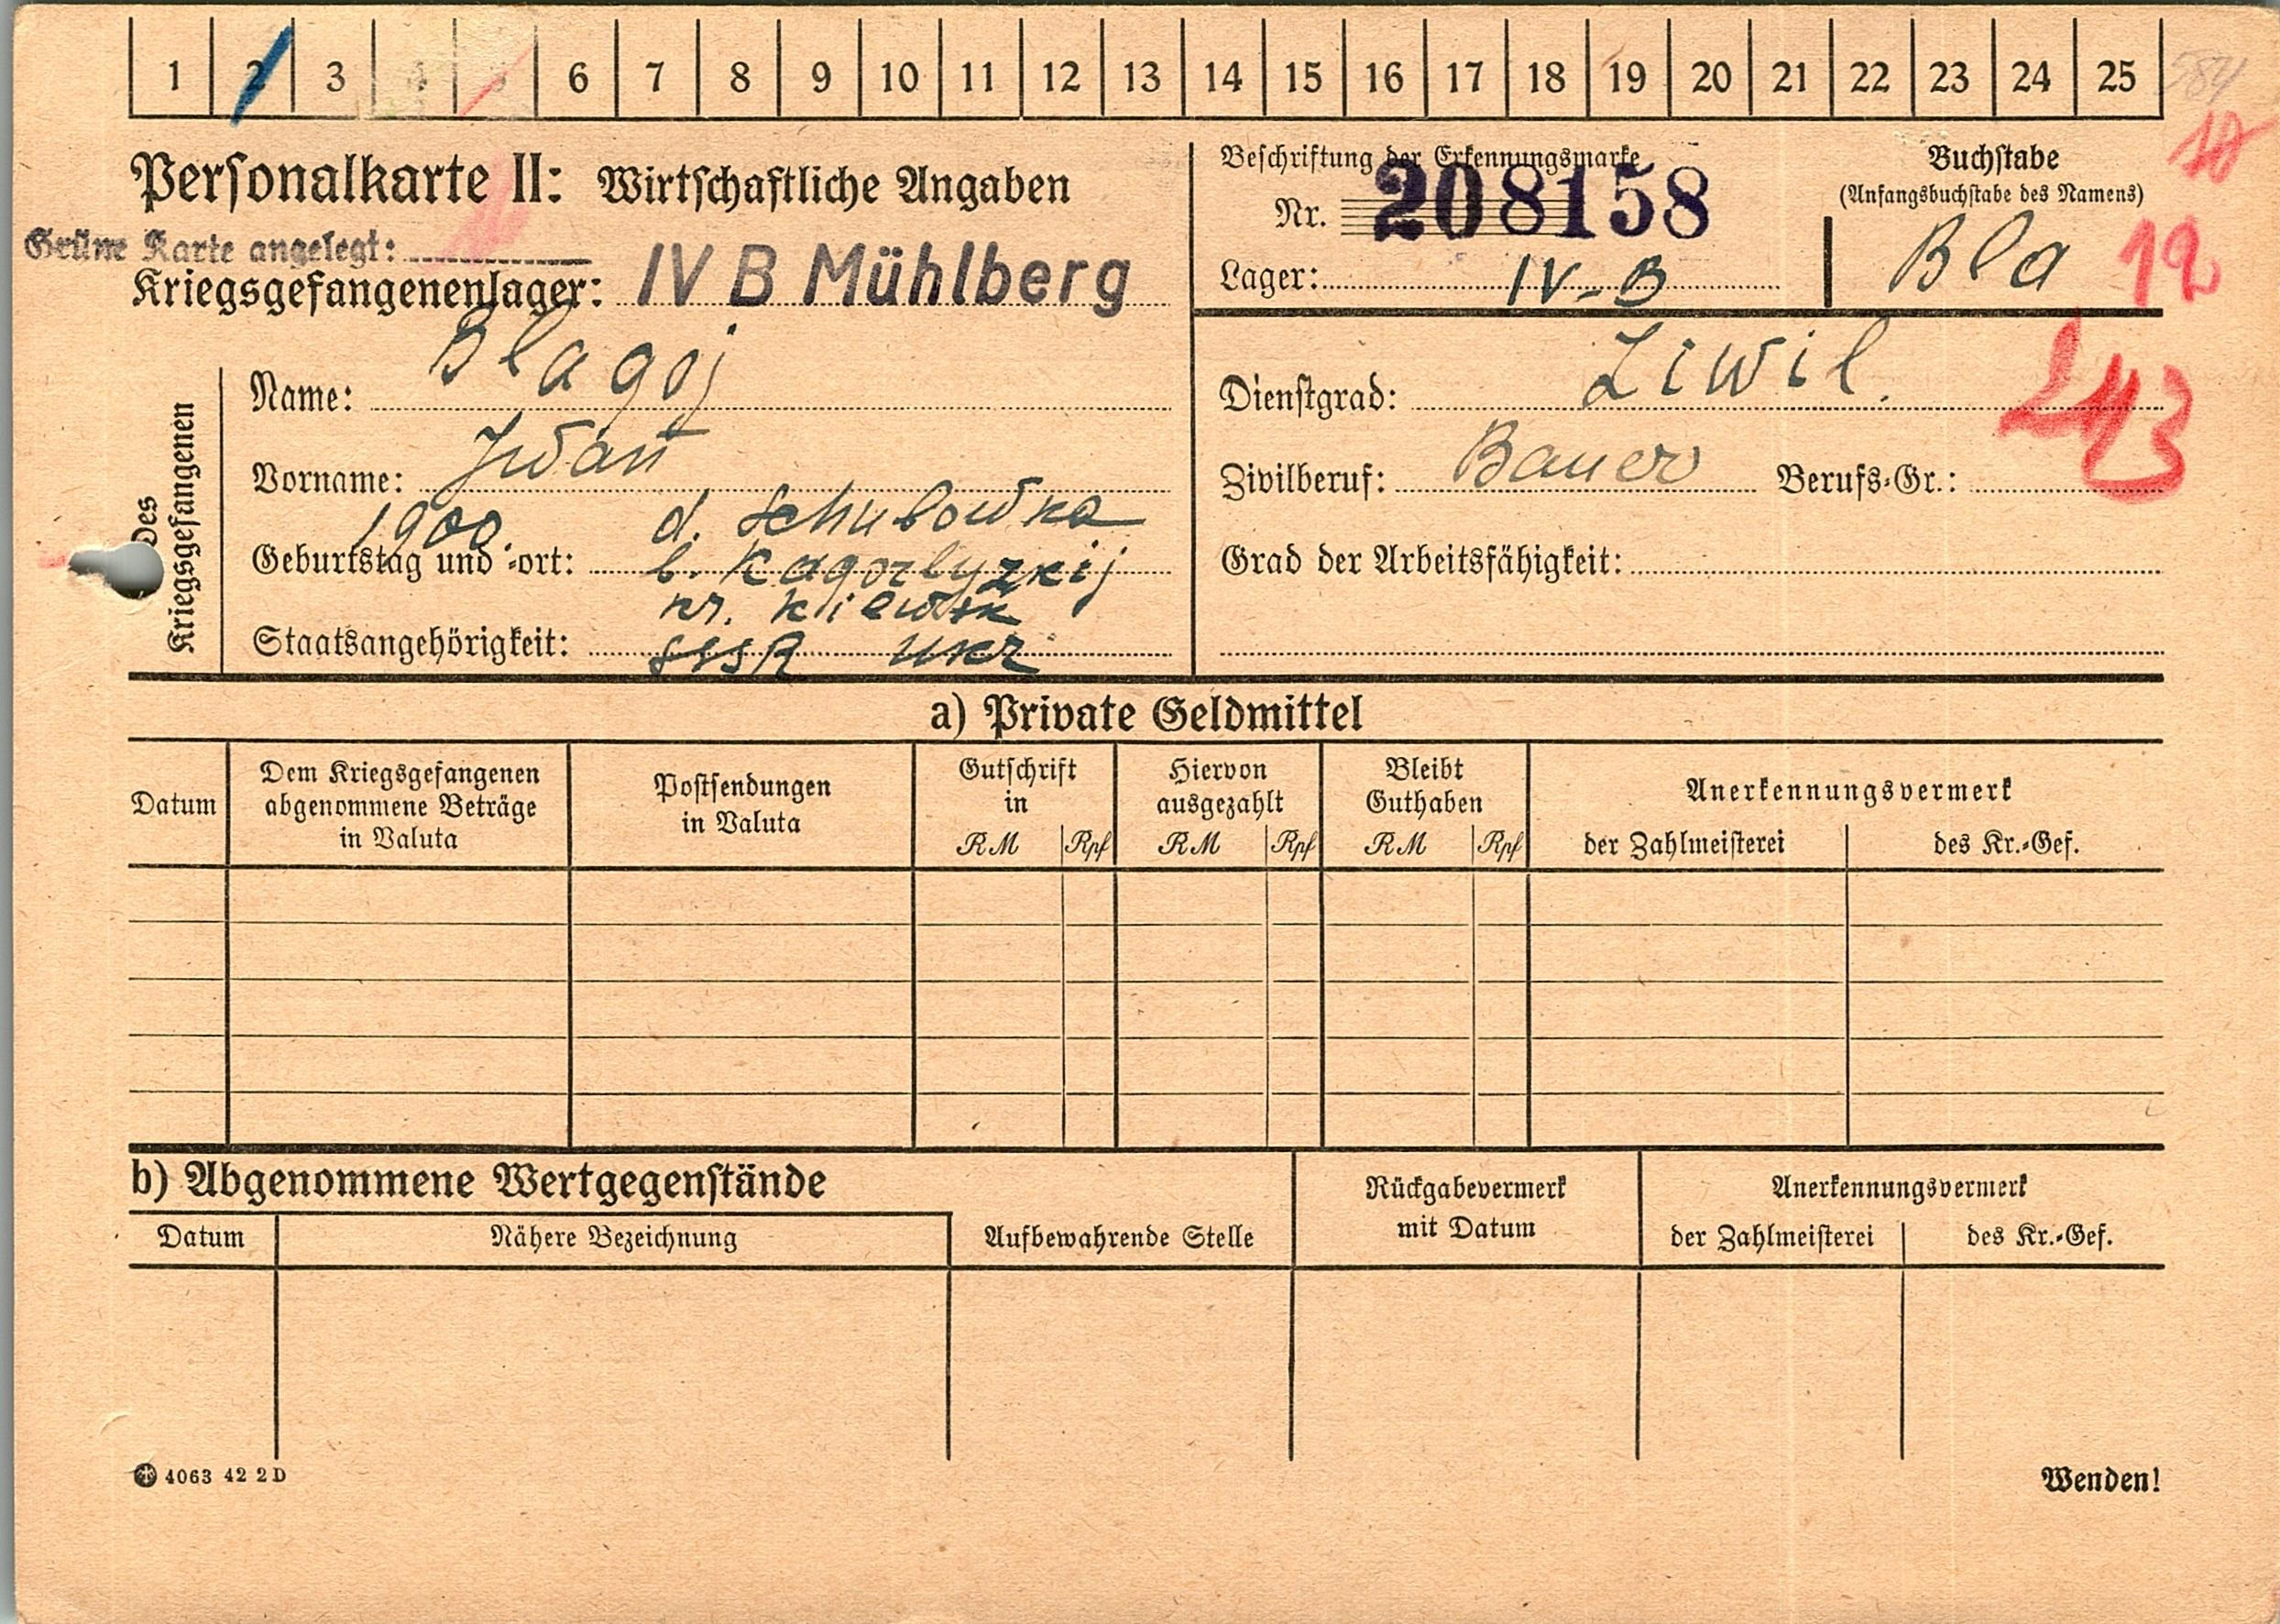 1 2 3 4 5 6 7 8 9 10 11 12 13 14 15 16 17 18 19 20 21 22 23 24 25
584
Personalkarte II: Wirtschaftliche Angaben
Grüne Karte angelegt:
Kriegsgefangenenlager: IV B Mühlberg
Beschriftung der Erkennungsmarke
Nr. 208158
Lager: IV-B
Buchstabe
(Anfangsbuchstabe des Namens)
Bla
18
12
Des Kriegsgefangenen
Name: Blagoj
Vorname: Iwan
Geburtstag und -ort: 1900. d. Schubowka
b. Kagorlyzkij
kr. Kiewsk
Staatsangehörigkeit: SSSR Ukr
Dienstgrad: Ziwil.
243
Zivilberuf: Bauer Berufs-Gr.:
Grad der Arbeitsfähigkeit:
a) Private Geldmittel
Datum
Dem Kriegsgefangenen
abgenommene Beträge
in Valuta
Postsendungen
in Valuta
Gutschrift
in
RM Rpf
Hiervon
ausgezahlt
RM Rpf
Bleibt
Guthaben
RM Rpf
Anerkennungsvermerk
der Zahlmeisterei des Kr.-Gef.
b) Abgenommene Wertgegenstände
Datum Nähere Bezeichnung
Aufbewahrende Stelle
Rückgabevermerk
mit Datum
Anerkennungsvermerk
der Zahlmeisterei des Kr.-Gef.
4063 42 2 D
Wenden!